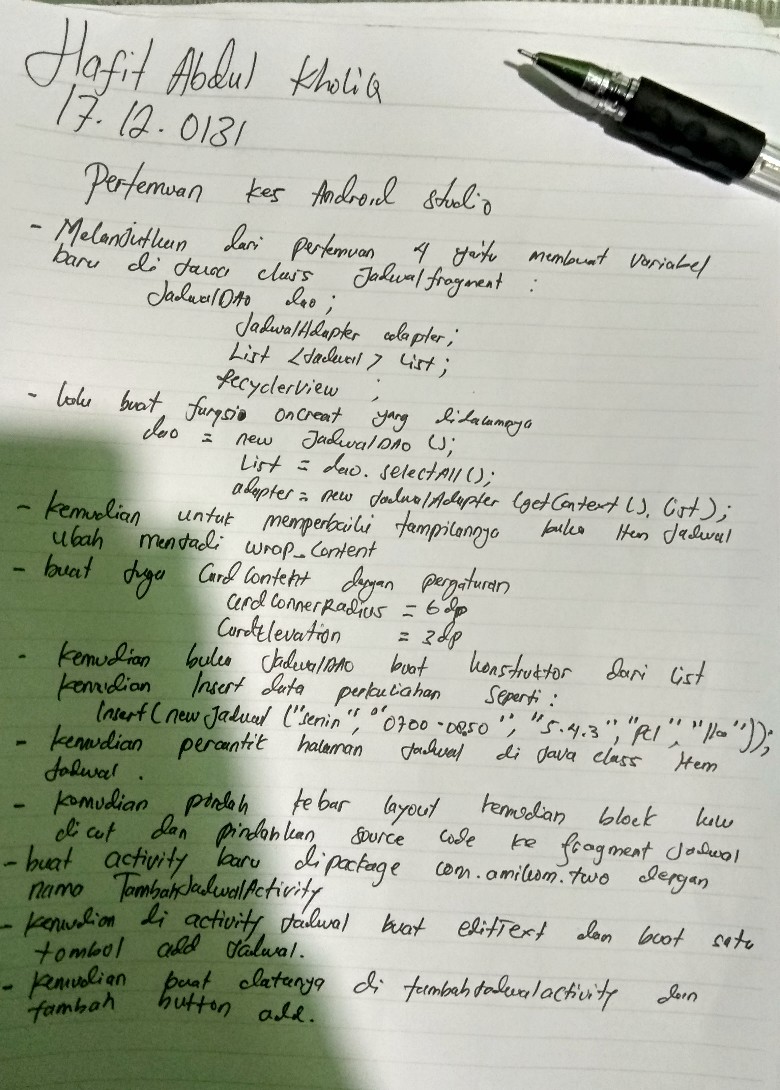 Hafit Abdul Kholiq
17.12.0131
Pertemuan kes Android studio
- Melanjutkan dari pertemuan 4 yaitu membuat variabel
baru di Java class Jadwalfragment :
JadwalDAO dao ;
JadwalAdapter adapter;
List <Jadwal> list ;
RecyclerView ;
- lalu buat fungsio onCreat yang didalamnya
dao = new JadwalDAO ();
List = dao. selectAll ();
adapter = new JadwalAdapter (getContext (), list);
- kemudian untuk memperbaiki tampilannya buka Item Jadwal
Ubah menjadi wrap_content
- buat juga Card Content dengan pengaturan
cardConnerRadius = 6 dp
CardElevation = 3 dp
- kemudian buka JadwalDAO buat konstruktor dari list
kemudian Insert data perkuliahan seperti :
Insert (new Jadwal ("senin", "0700-0850", "5.4.3", "pcl", ));
- kemudian percantik halaman Jadwal di Java class Item
Jadwal .
- komudian pindah kebar layout kemudian block lalu
di cut dan pindahkan source code ke fragment Jadwal
- buat activity baru dipackage com.amikom.two dengan
nama TambahJadwalActivity
- kemudian di activity Jadwal buat editText dan buat satu
tombol add Jadwal.
- kemudian buat datanya di tambahJadwalactivity dan
tambah button add.